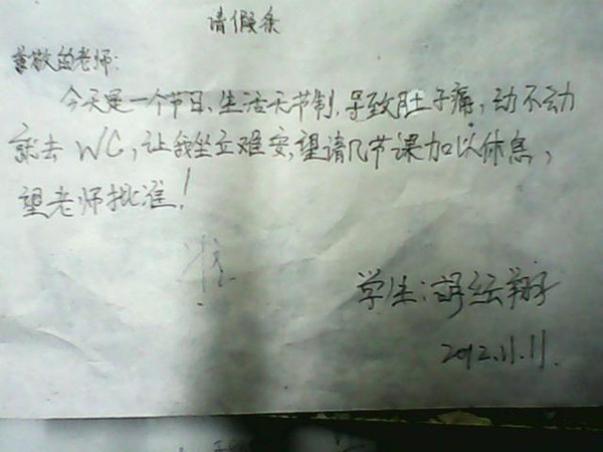 请假条
尊敬的老师:
今天是一个节日,生活无节制,导致肚子痛,动不动
就去WC,让我坐立难安,望请几节课加以休息,
望老师批准!
准
学生:
2012.11.11.